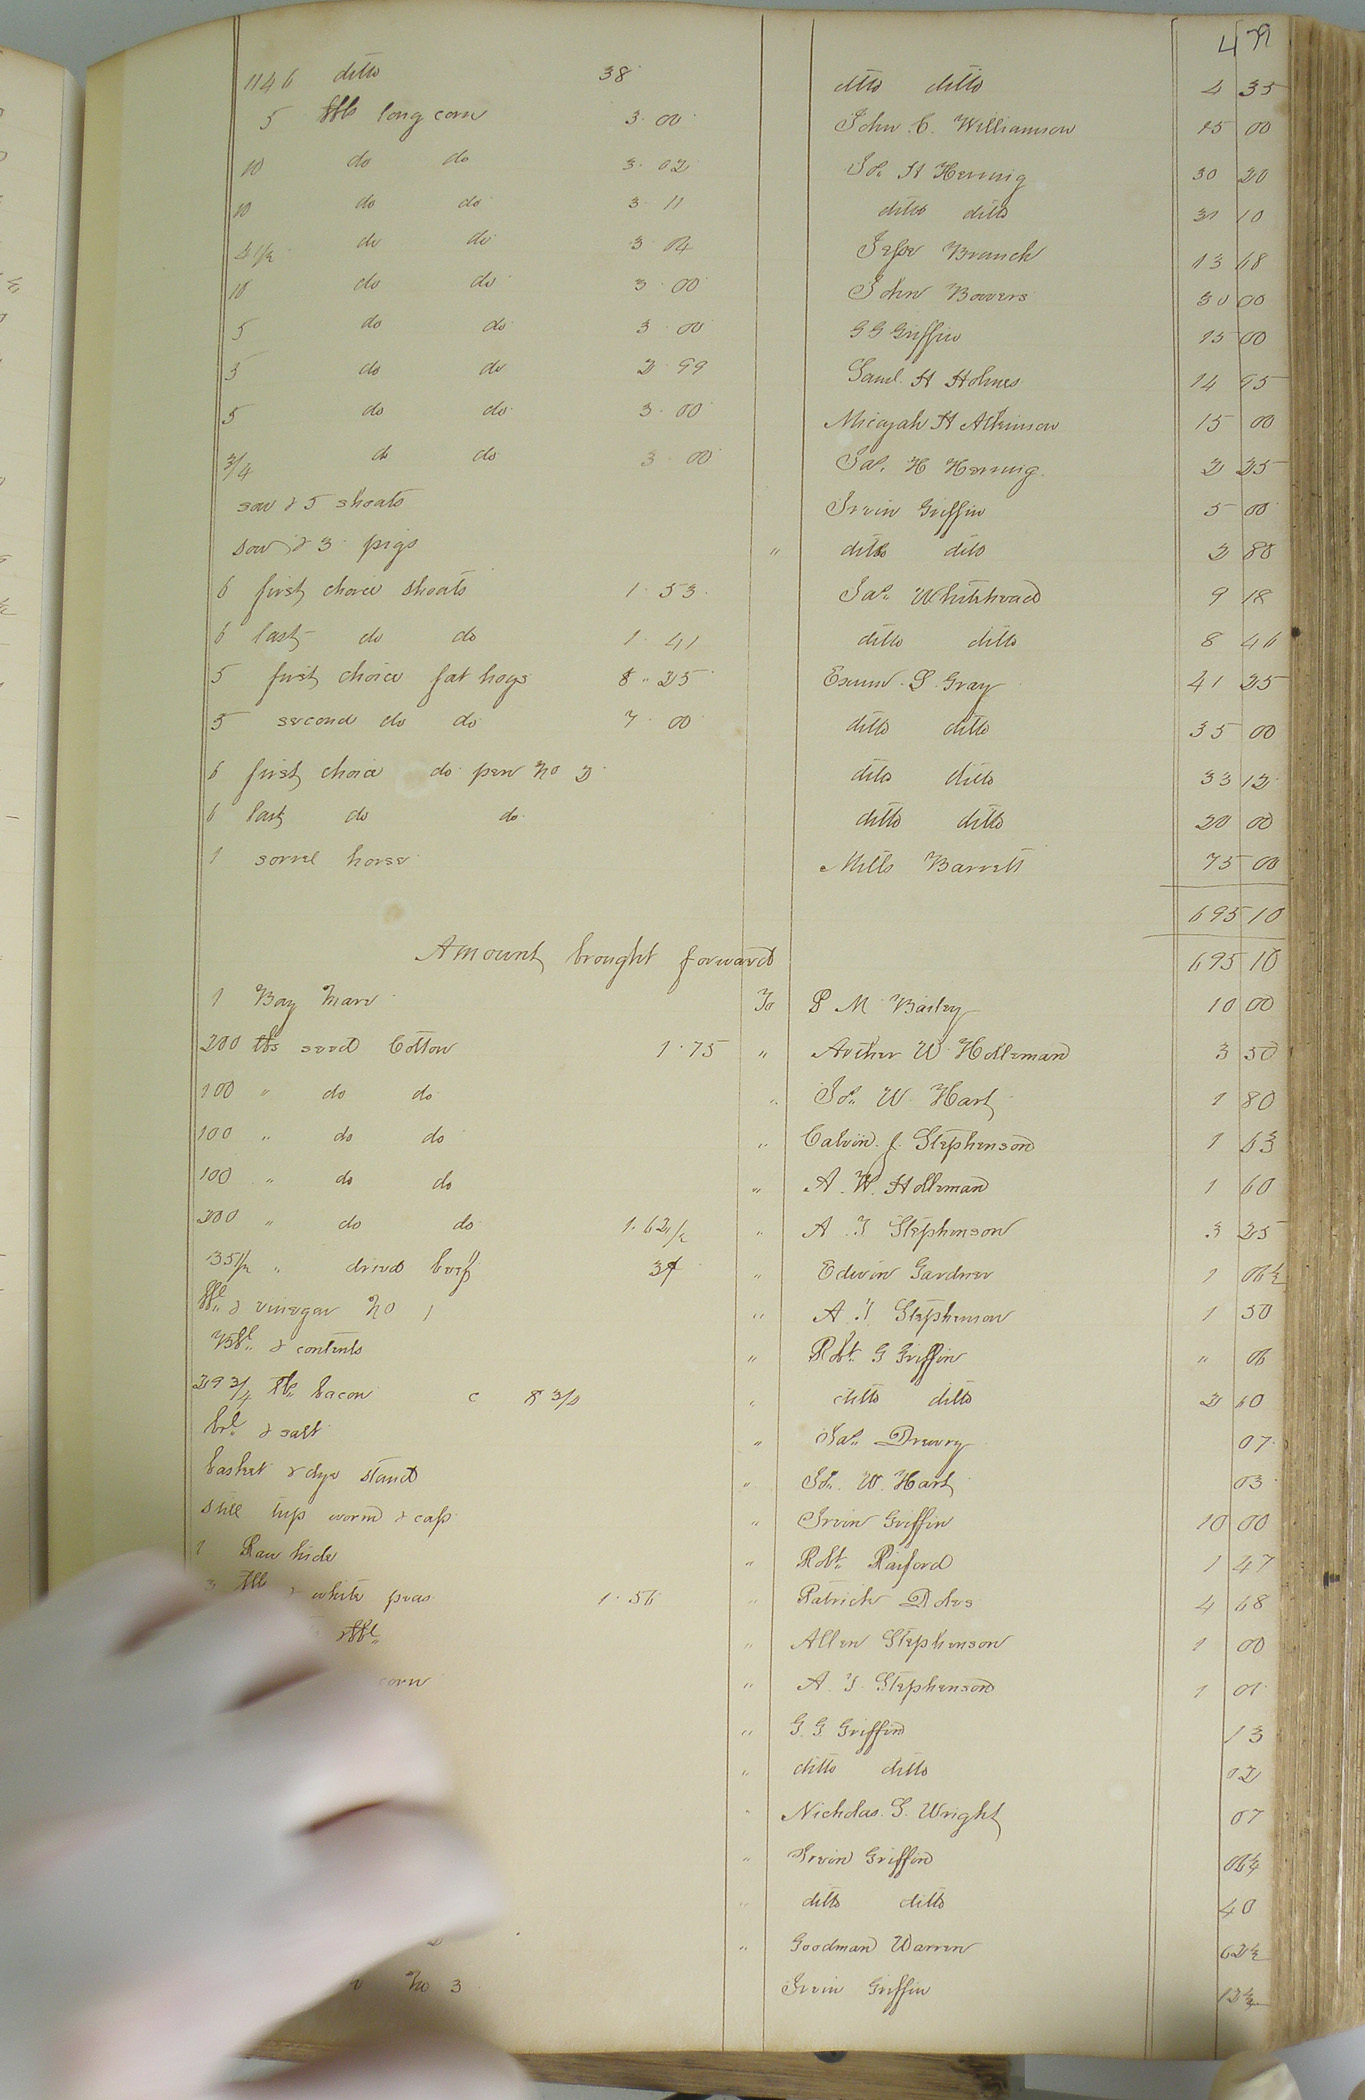 47
1146 ditto 38 ditto ditto 4 35
5 bbls long corn 3.00 John C. Williamson 15 00
10 do do 3.02 Jos. H Herring 30 20
10 do do 3 11 ditto ditto 31 10
4 1/2 do do 3 04 Jesse Branch 13 68
10 do do 3.00 John Bowers 30 00
5 do do 3.00 G G Griffin 15 00
5 do do 2 99 Saml. H Holmes 14 95
5 do do 3.00 Micajah H Atkinson 15 00
3/4 do do 3 00 Jas. H Herring 2 25
sow & 5 shoats Irvin Griffin 5 00
sow & 3 pigs " ditto ditto 2 80
6 first choice shoats 1.53 Jas. Whitehead 9 18
6 last do do 1.41 ditto ditto 8 46
5 first choice fat hogs 8.25 Edmd. S. Gray 41 25
5 second do do 7 00 ditto ditto 35 00
6 first choice do pen No 2 ditto ditto 33 12
6 last do do ditto ditto 20 00
1 sorrel horse Mills Barrett 75 00
695 10
Amount brought forward 695 10
1 Bay Mare To P M Bailey 10 00
200 lbs seed Cotton 1.75 " Arther W. Holleman 3 50
100 " do do " Jos. W. Hart 1 80
100 " do do " Calvin J. Stephenson 1 63
100 " do do " A. W. Holleman 1 60
200 " do do 1.62 1/2 " A. J Stephenson 3 25
35 1/2 " dried beef 3 " Edwin Gardner 1 06 1/2
bbl. & vinegar No 1 " A. J. Stephenson 1 50
Bbl. & contents " Robt. G Griffin " 06
29 3/4 lbs. bacon c 8 3/4 " ditto ditto 2 60
brl. & salt " Jas. Drewry 07
basket & dye stand " Jos. W. Hart 03
Still tub worm & cap " Irvin Griffin 10 00
1 Raw hide " Robt. Raiford 1 47
3 bbls & white peas 1.56 " Patrick Doles 4 68
& bbl. " Allen Stephenson 1 00
corn " A. J. Stephenson 1 01
" G. G. Griffin 13
" ditto ditto 02
" Nicholas. S. Wright 07
" Irvin Griffin 06 1/4
" ditto ditto 40
" Goodman Warren 62 1/2
No 3 Irvin Griffin 12 1/2